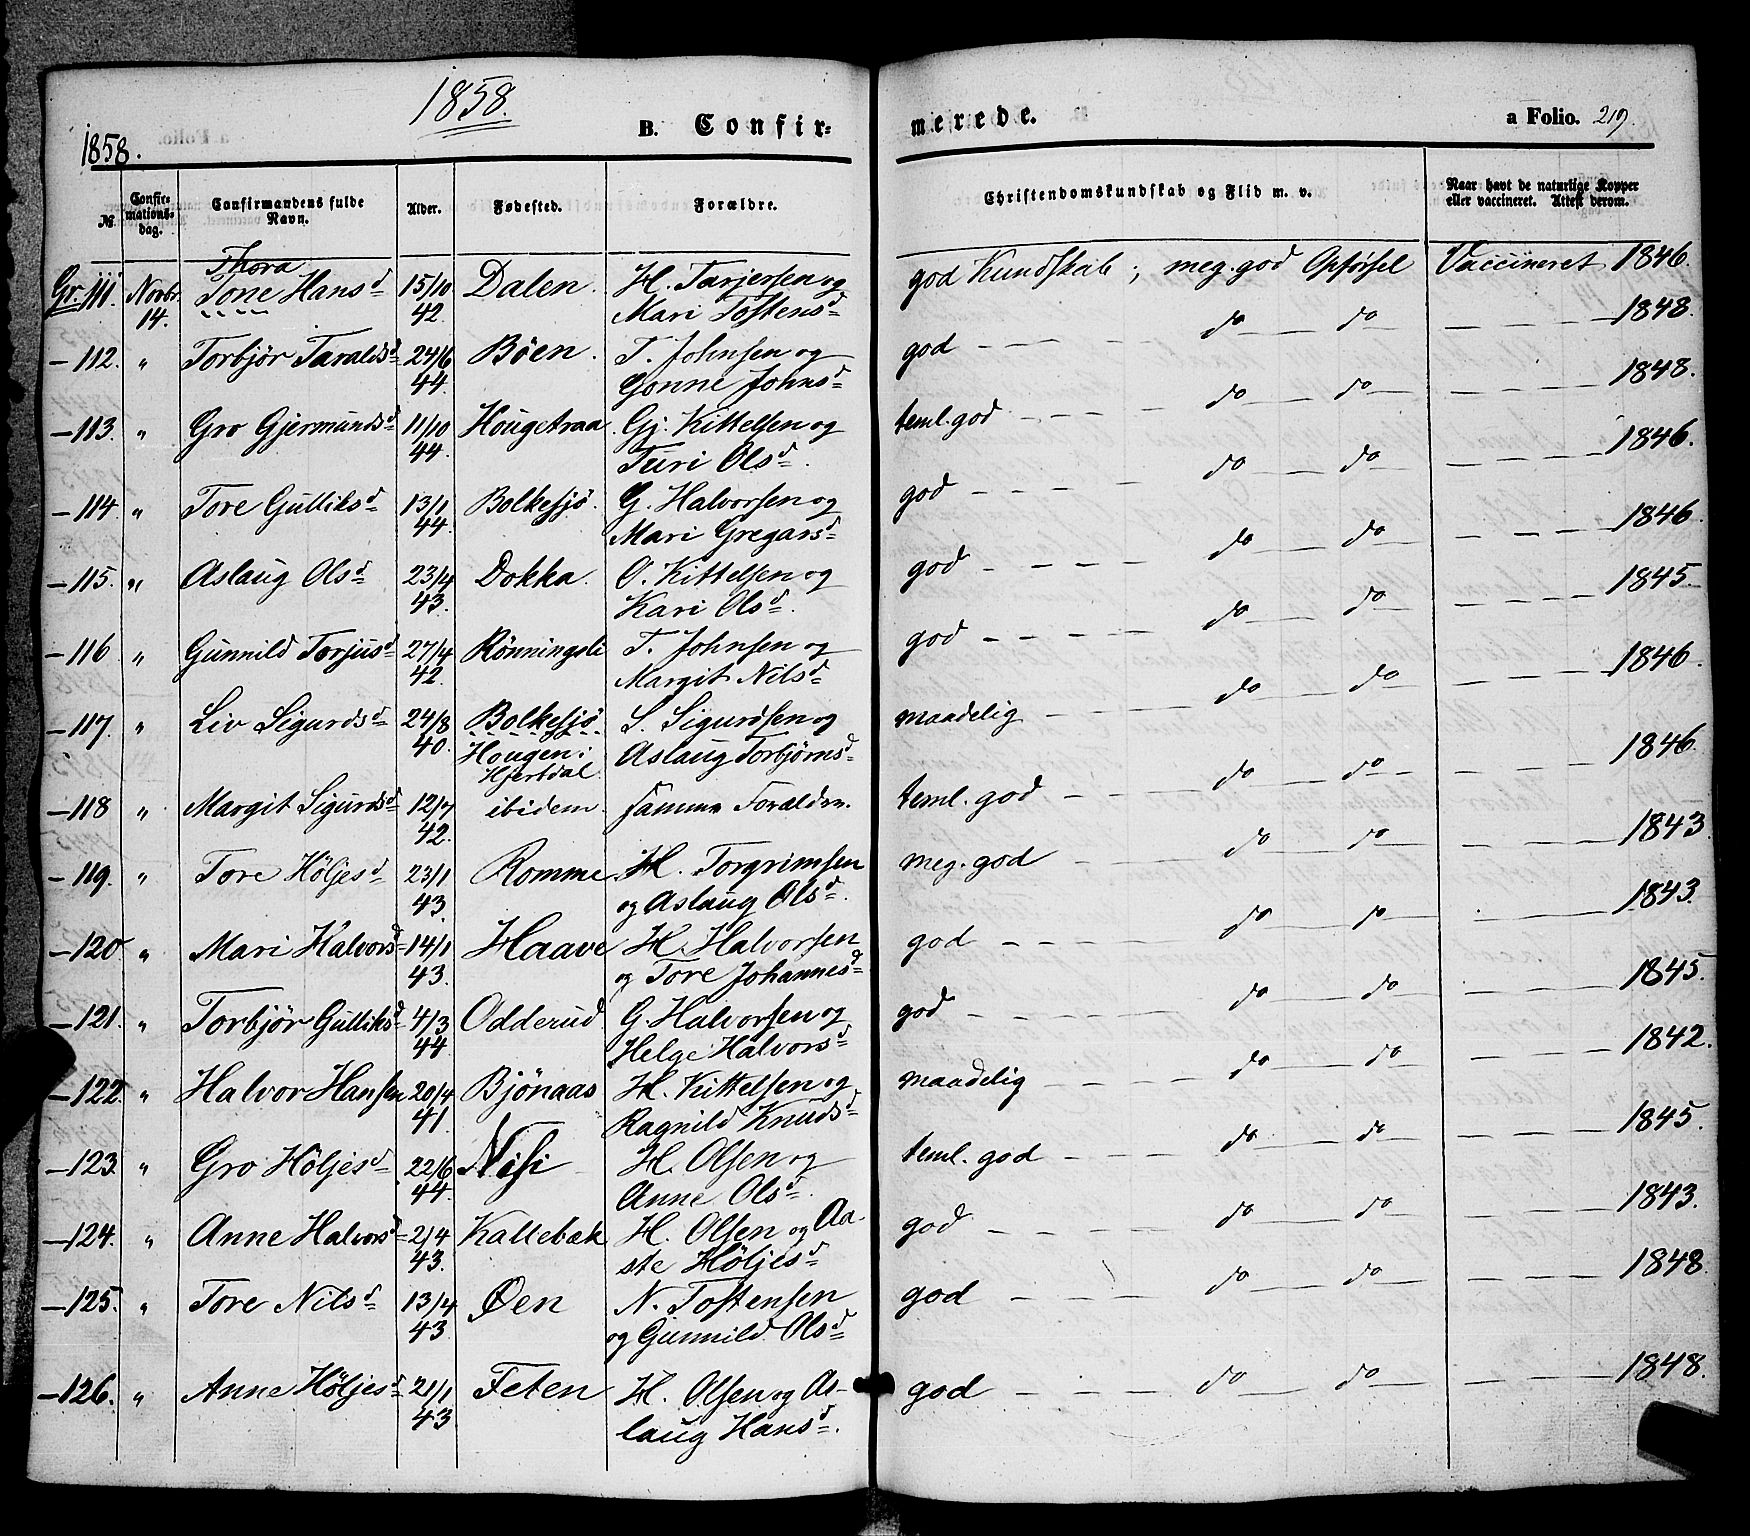 1858.
1858. B. Confir= merede. a Folio. 219.
№ Confir=mations=dag. Confirmandens fulde Navn. Alder. Fødested. Forældre. Christendomskundskab og Flid m. v. Naar havt de naturlige Kopper eller vaccineret. Attest derom.
Thora
Gr. 111. Novbr 14. Tone Hansd 15/10 42. Dalen. H. Tarjersen og Mari Tostensd god Kundskab; meg. god Opførsel Vaccineret 1846.
—112. " Torbjør Taraldsd 24/6 44. Bøen. T. Johnsen og Gonne Johnsd god — — — do — do — — — 1848.
—113. " Gro Gjermundsd 11/10 44. Hougetraa Gj. Kittelsen og Turi Olsd. teml. god — — — do — do — — — 1848.
—114. " Tore Gulliksd 13/1 44. Bolkesjö. G. Halvorsen og Mari Gregarsd god — — — do — do — — — 1846.
—115. " Aslaug Olsd 23/4 43. Dokka. O. Kittelsen og Kari Olsd. god — — — do — do — — — 1846
—116 " Gunnild Torjusd 27/4 42. Rönningsli T. Johnsen og Margit Nilsd god — — — do — do — — — 1845.
—117. " Liv Sigurdsd 24/8 40. Bolkesjö Hougen i Hjertdal. S. Sigurdsen og Aslaug Torbjørnsd maadelig — — — do — do — — — 1846.
—118 " Margit Sigurdsd 12/7 42. ibidem. samme Forældre. teml. god — — — do — do — — — 1846.
—119. " Tore Höljesd 23/1 43. Romme H. Torgrimsen og Aslaug Olsd. meg. god — — — do — do — — — 1843
—120 " Mari Halvorsd 14/1 43. Haave H. Halvorsen og Tore Johannesd god — — — do — do — — — 1843.
—121. " Torbjör Gulliksd 4/3 44. Odderud G. Halvorsen og Helge Halvorsd god — — — do — do — — — 1845.
—122 " Halvor Hansen 20/4 41. Bjönaas H. Kittelsen og Ragnild Knudsd maadelig — — — do — do — — — 1842.
—123. " Gro Höljesd 22/6 44. Nisi H. Olsen og Anne Olsd. teml. god — — — do — do — — — 1845.
—124. " Anne Halvorsd 2/4 43. Kallebæk H. Olsen og Aaste Höljesd god — — — do — do — — — 1843.
—125. " Tore Nilsd 13/4 43 Øen N. Tostensen og Gunnild Olsd god — — — do — do — — — 1848
—126. " Anne Höljesd 21/1 43 Feten H. Olsen og Aslaug Hansd. god — — — do — do — — — 1848.